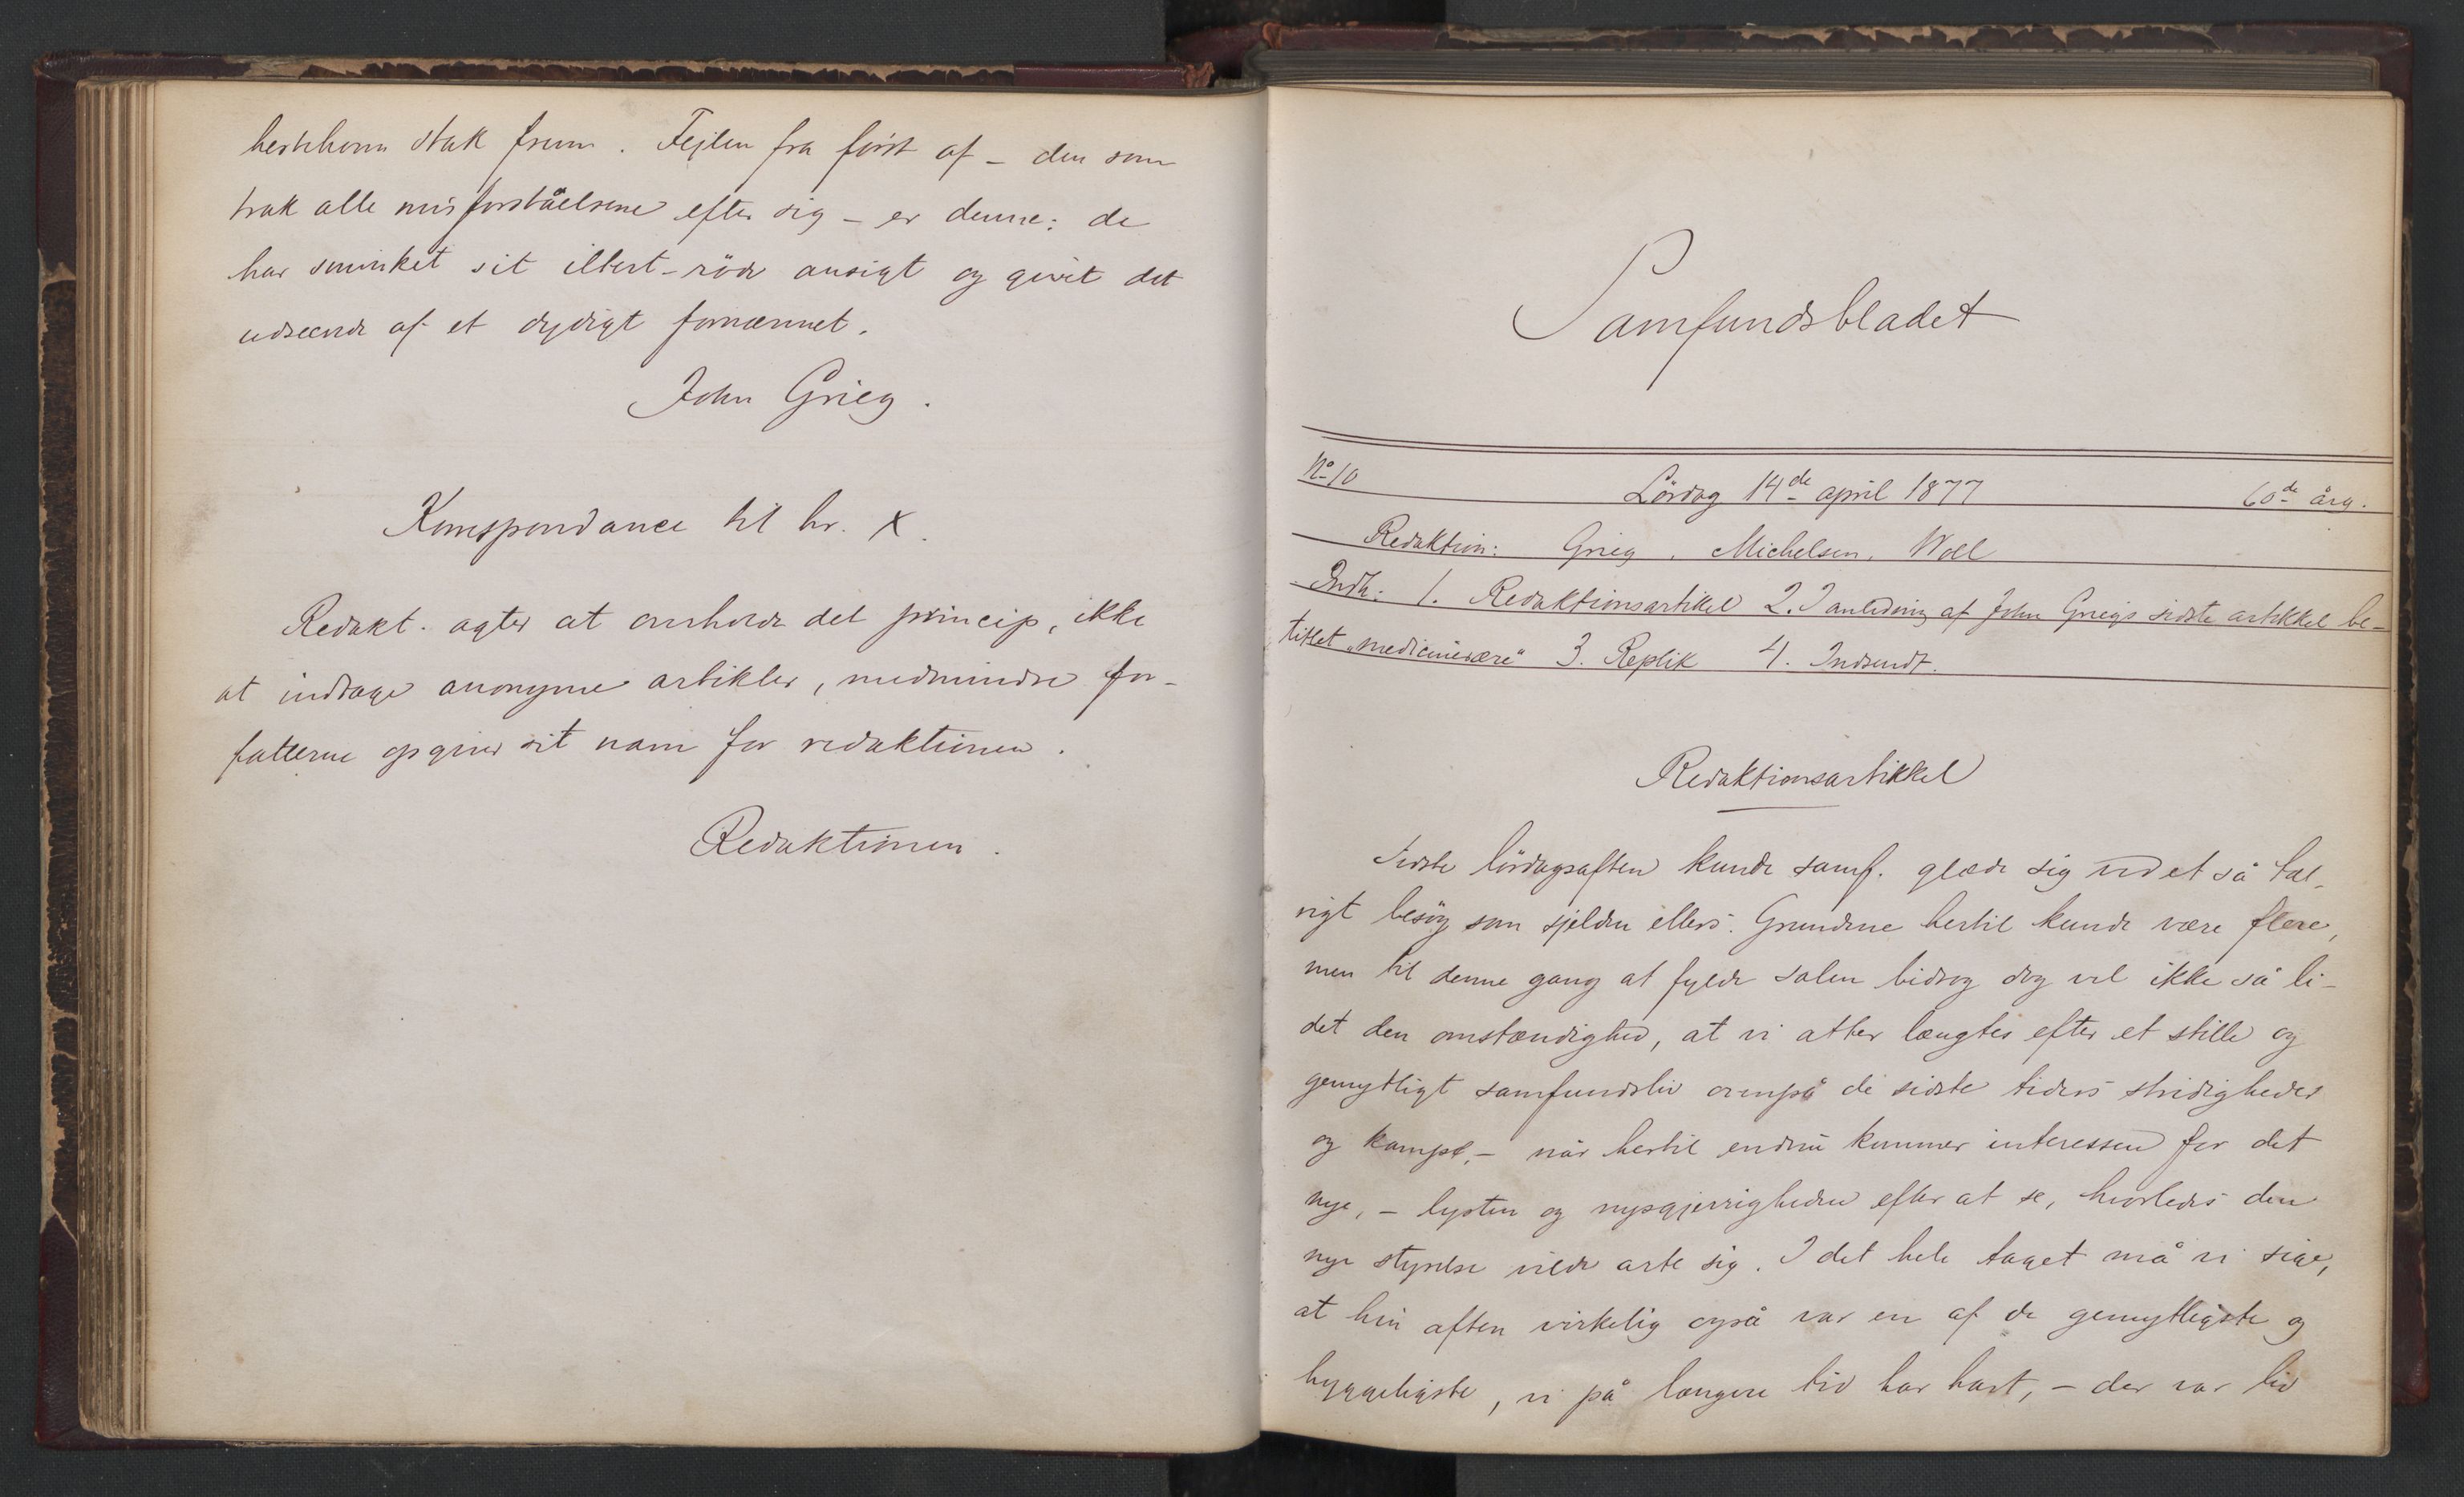 hestehoven stak frem. Fejlen fra först af – den som
trak alle misforståelserne efter sig – er denne: de
har sminket sit ildert-röde ansigt og givet det
udseende af et dydigt fornemmet.
John Grieg.
Korrespondance til hr. X.
Redakt. agter at overholde det princip, ikke
at indtage anonyme artikler, medmindre for-
fatterne opgiver sit navn for redaktionen.
Redaktionen.
Samfundsbladet
No 10 Lördag 14de april 1877 60de årg.
Redaktion: Grieg, Michelsen, Woll
Indh: 1. Redaktionsartikel 2. I anledning af John Griegs sidste artikkel be-
titlet „medicinerære" 3. Replik 4. Indsendt.
Redaktionsartikkel
Sidste lördagsaften kunde samf. glæde sig ved et så tal-
rigt besög som sjelden ellers. Grundene hertil kunde være flere,
men til denne gang at fylde salen bidrog dog vel ikke så li-
det den omstændighed, at vi atter længtes efter et stille og
gemytligt samfundsliv ovenpå de sidste tiders stridigheder
og kampe, – når hertil endnu kommer interessen for det
nye, – lysten og nysgjerrigheden efter at se, hvorledes den
nye styrelse vilde arte sig. I det hele taget må vi sige,
at hin aften virkelig også var en af de gemytligste og
hyggeligste, vi på længere tid har havt, – der var liv